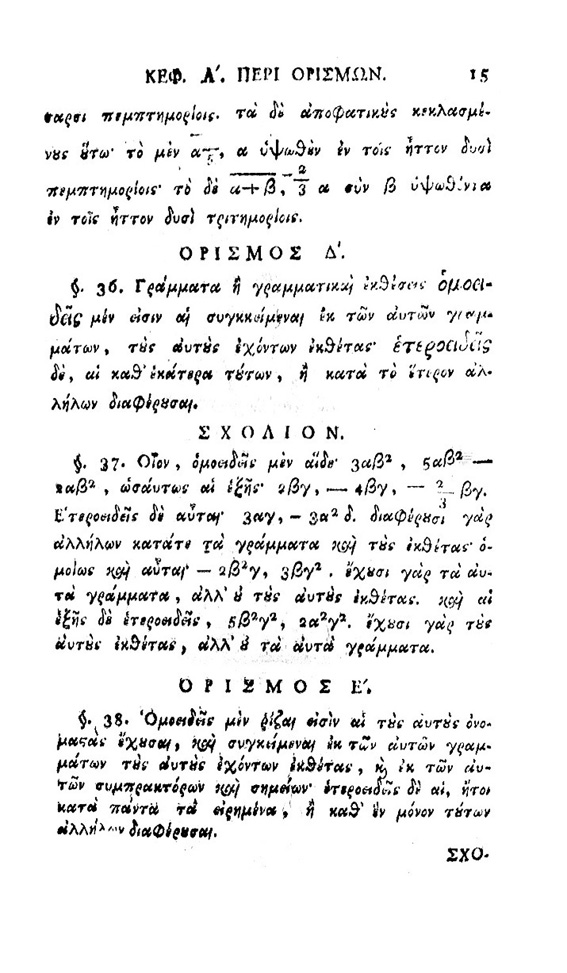 ΚΕΦ. Α´. ΠΕΡΙ ΟΡΙΣΜΩΝ. 15
σαρσι πεμπτημορίοις. τὰ δὲ ἀποφατικοὺς κεκλασμέ-
νους οὕτω· τὸ μὲν α, α ὑψωθὲν ἐν τοῖς ἧττον δυσὶ
πεμπτημορίοις· τὸ δὲ α+β, −2/3 α σὺν β ὑψωθέντα
ἐν τοῖς ἧττον δυσὶ τριτημορίοις.
ΟΡΙΣΜΟΣ Δ´.
§. 36. Γράμματα ἢ γραμματικαὶ ἐκθέσεις ὁμοει-
δεῖς μέν εἰσιν αἱ συγκείμεναι ἐκ τῶν αὐτῶν γραμ-
μάτων, τοὺς αὐτοὺς ἐχόντων ἐκθέτας· ἑτεροειδεῖς
δὲ, αἱ καθ' ἑκάτερα τούτων, ἢ κατὰ τὸ ἕτερον ἀλ-
λήλων διαφέρουσαι.
ΣΧΟΛΙΟΝ.
§. 37. Οἷον, ὁμοειδεῖς μὲν αἵδε· 3αβ², 5αβ² —
2αβ², ὡσαύτως αἱ ἑξῆς· 2βγ, — 4βγ, — 2/3 βγ.
Ἑτεροειδεῖς δὲ αὗται· 3αγ, — 3α² δ. διαφέρουσι γὰρ
ἀλλήλων κατάτε τὰ γράμματα καὶ τοὺς ἐκθέτας· ὁ-
μοίως καὶ αὗται — 2β²γ, 3βγ². ἔχουσι γὰρ τὰ αὐ-
τὰ γράμματα, ἀλλ' οὐ τοὺς αὐτοὺς ἐκθέτας. καὶ αἱ
ἑξῆς δὲ ἑτεροειδεῖς, 5β²γ², 2α²γ². ἔχουσι γὰρ τοὺς
αὐτοὺς ἐκθέτας, ἀλλ' οὐ τὰ αὐτὰ γράμματα.
ΟΡΙΣΜΟΣ Ε´.
§. 38. Ὁμοειδεῖς μὲν ῥίζαι εἰσὶν αἱ τοὺς αὐτοὺς ὀνο-
μαστὰς ἔχουσαι, καὶ συγκείμεναι ἐκ τῶν αὐτῶν γραμ-
μάτων τοὺς αὐτοὺς ἐχόντων ἐκθέτας, ϗ ἐκ τῶν αὐ-
τῶν συμπρακτόρων καὶ σημείων· ἑτεροειδεῖς δὲ αἱ, ἤτοι
κατὰ πάντα τὰ εἰρημένα, ἢ καθ' ἓν μόνον τούτων
ἀλλήλων διαφέρουσαι.
ΣΧΟ-